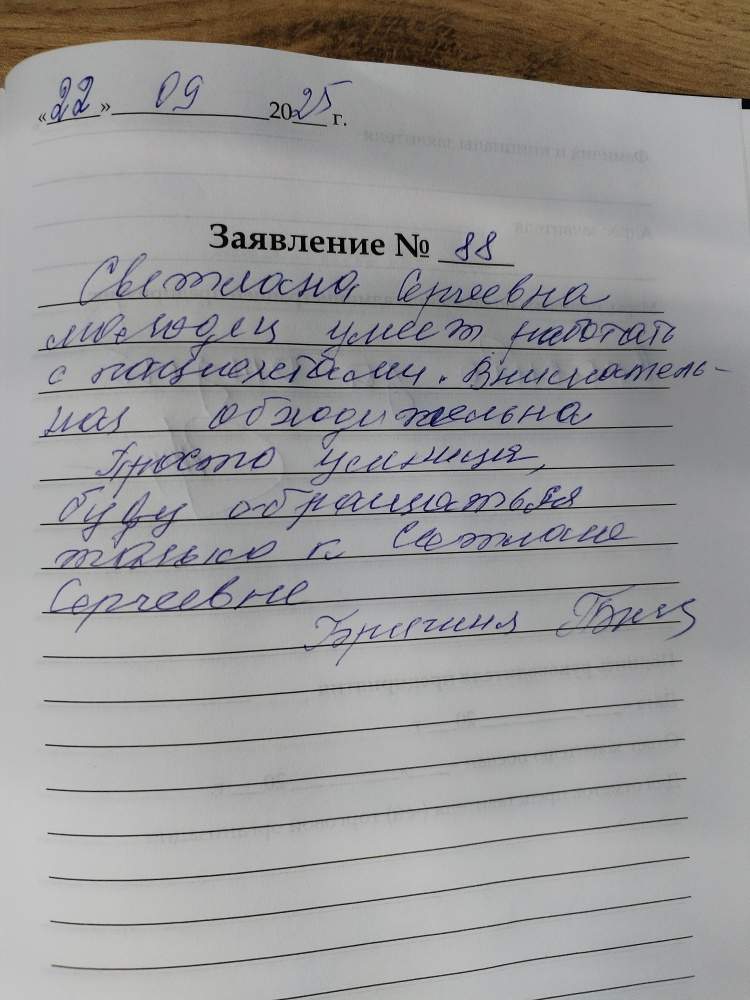 «22» 09 2025 г.
Заявление № 88
Светлана Сергеевна
молодец умеет работать
с пациентами. Вниматель-
ная обходительна
Просто умница,
буду обращаться
только к Светлане
Сергеевне